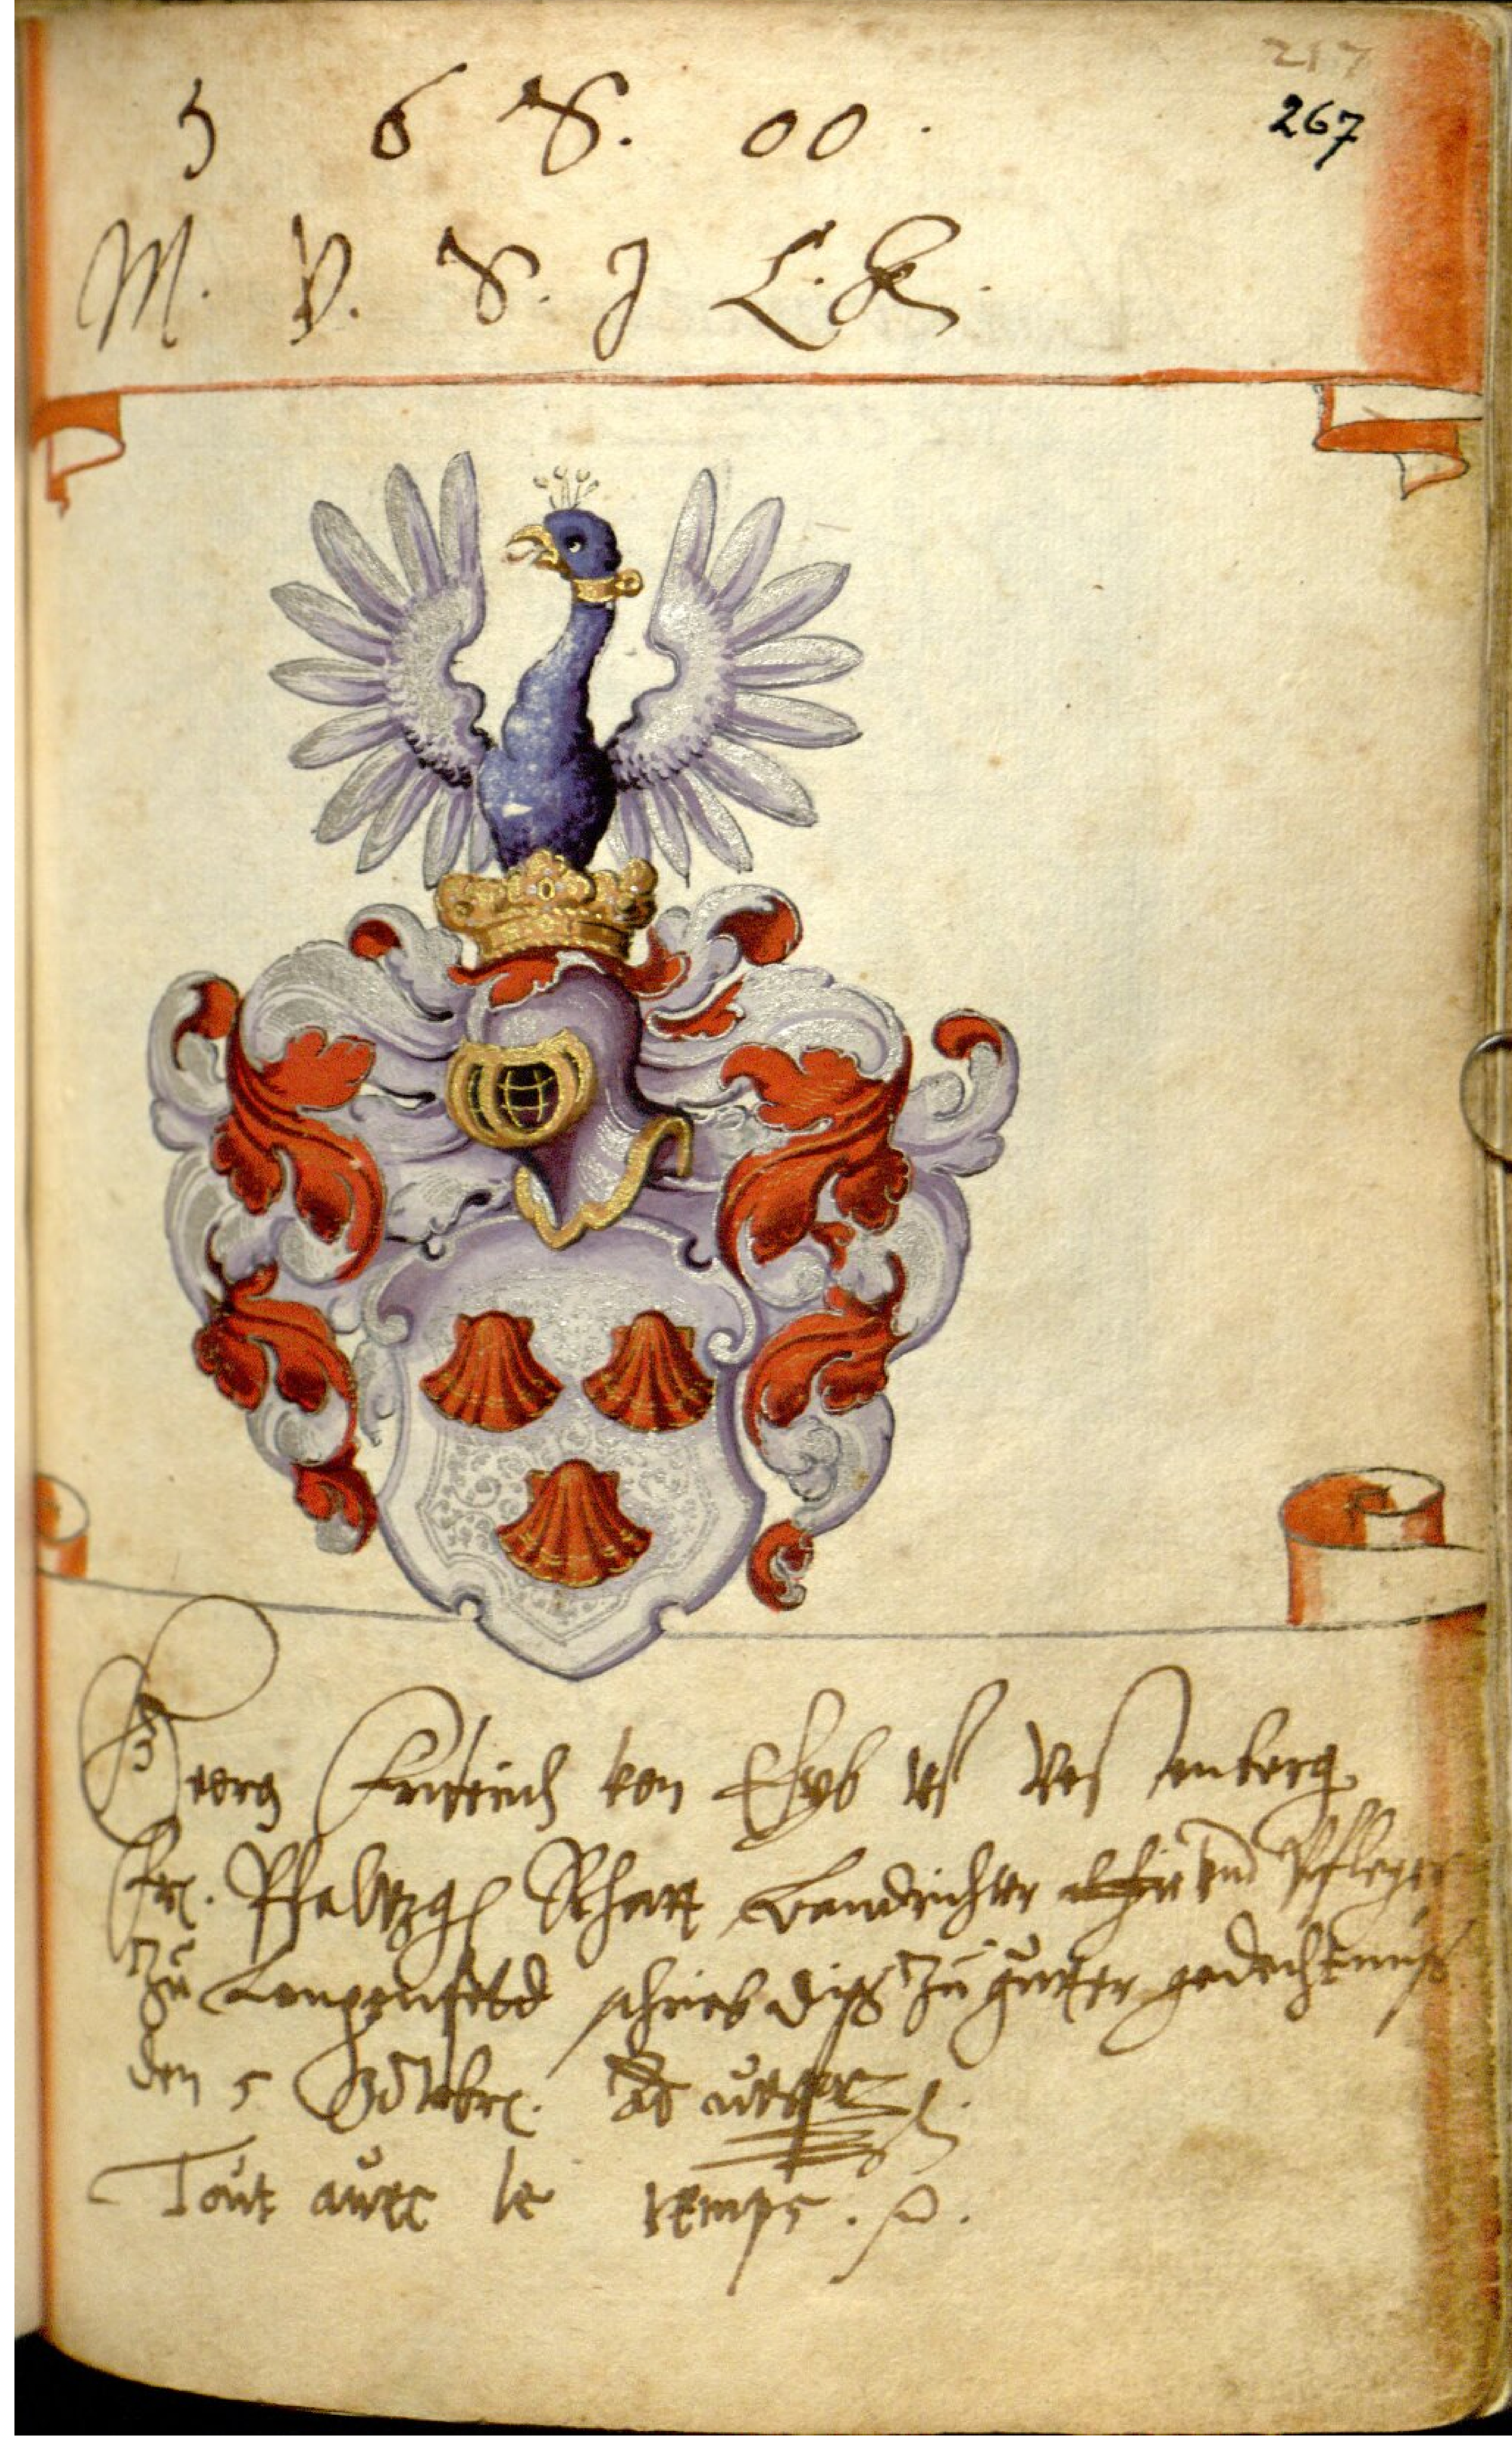 217
5 6 S. 00.
267
M. V. S. J L. K.
Georg Friderich von Eyb uf Vestenberg
Fr. Pfaltzg Rhatt Landrichter und Pfleger
Zu Lengenfeld schrieb diß Zu gutter gedechtnuß
den 5 Octobr. Ao
Tout avec le temps.